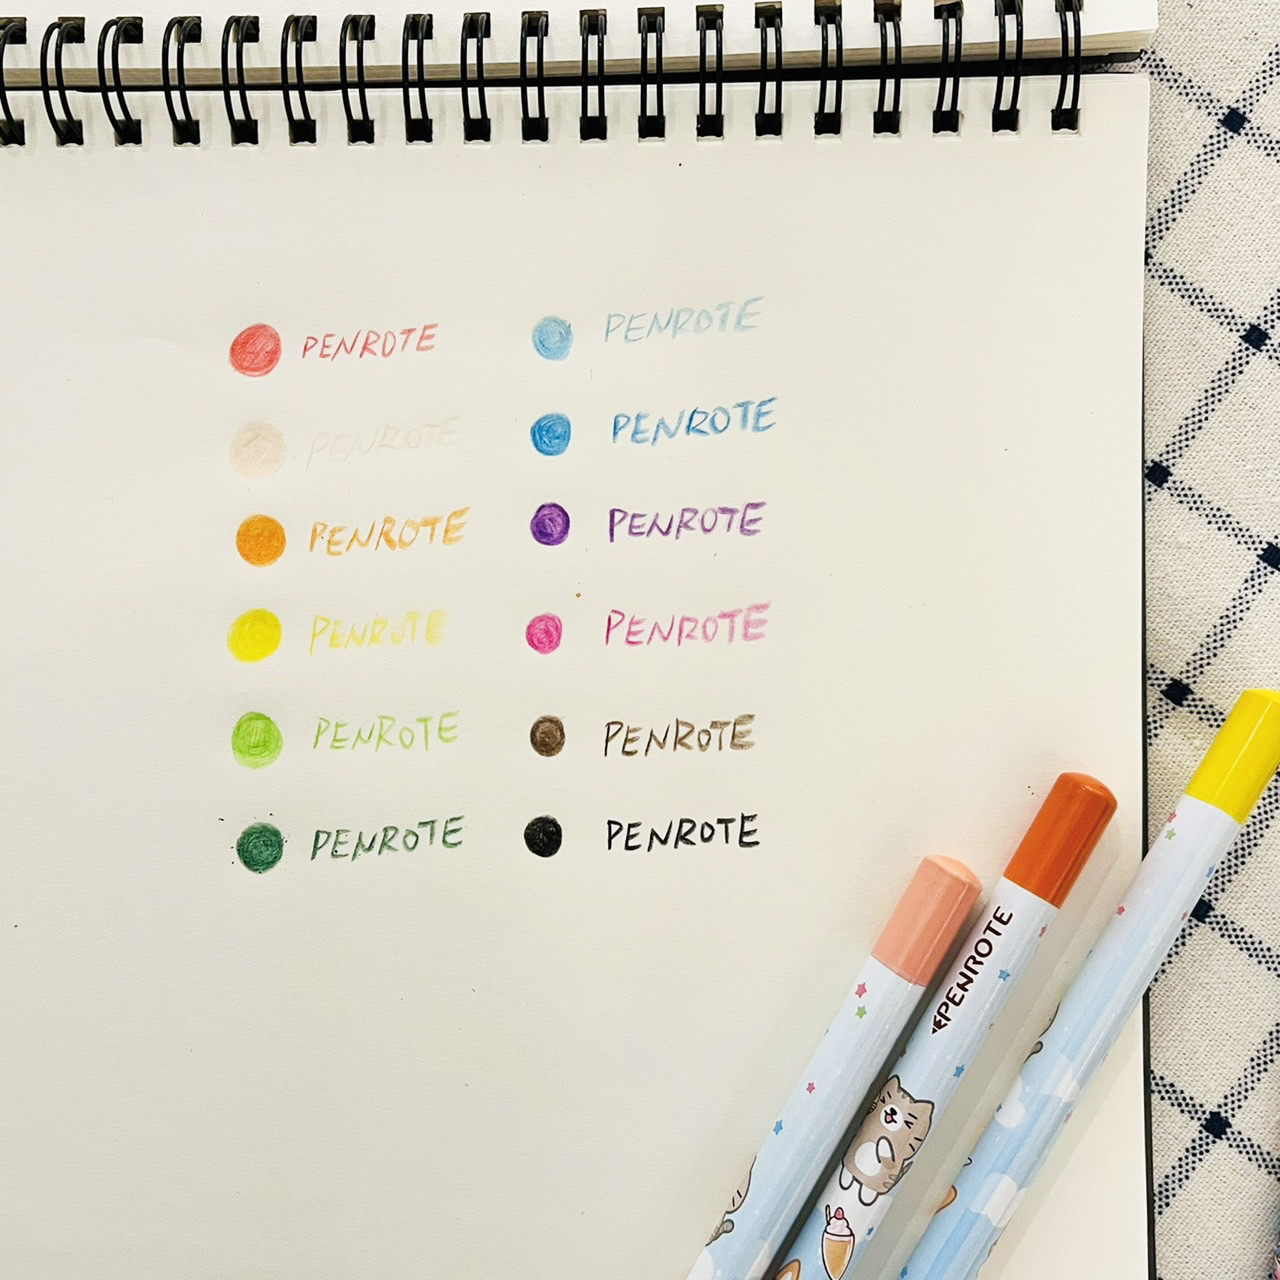 PENROTE
PENROTE
PENROTE
PENROTE
PENROTE
PENROTE
PENROTE
PENROTE
PENROTE
PENROTE
PENROTE
PENROTE
PENROTE